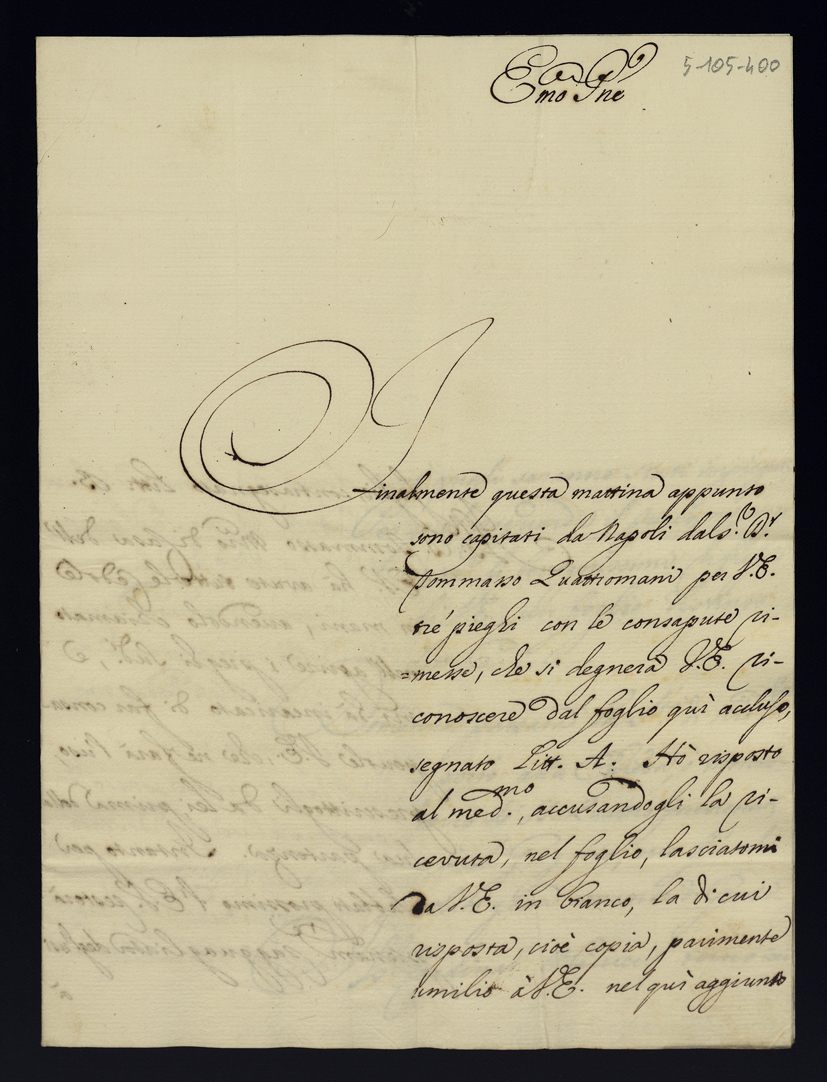 5-105-400
Emo Sne
Finalmente questa mattina appunto
sono capitati da Napoli dal s.r D.r
Tommaso Quattromani per V.E.
trè pieghi con le consapute ri-
=messe, che si degnerà V.E. ri-
conoscere dal foglio quì accluso,
segnato Litt. A. Hò risposto
al med.mo, accusandogli la ri-
cevuta, nel foglio, lasciatomi
da V.E. in bianco, la di cui
risposta, cioè copia, parimente
umilio à V.E. nel quì aggiunto